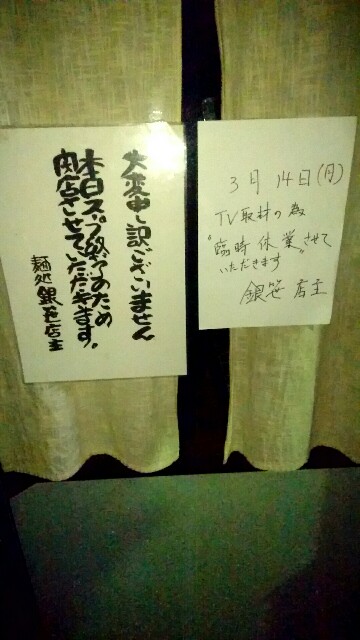 大変申し訳ございません
本日スープ終了のため
閉店させていただきます。
麺処 銀笹店主
3月 14日(月)
TV取材の為
"臨時休業"させて
いただきます
銀笹 店主